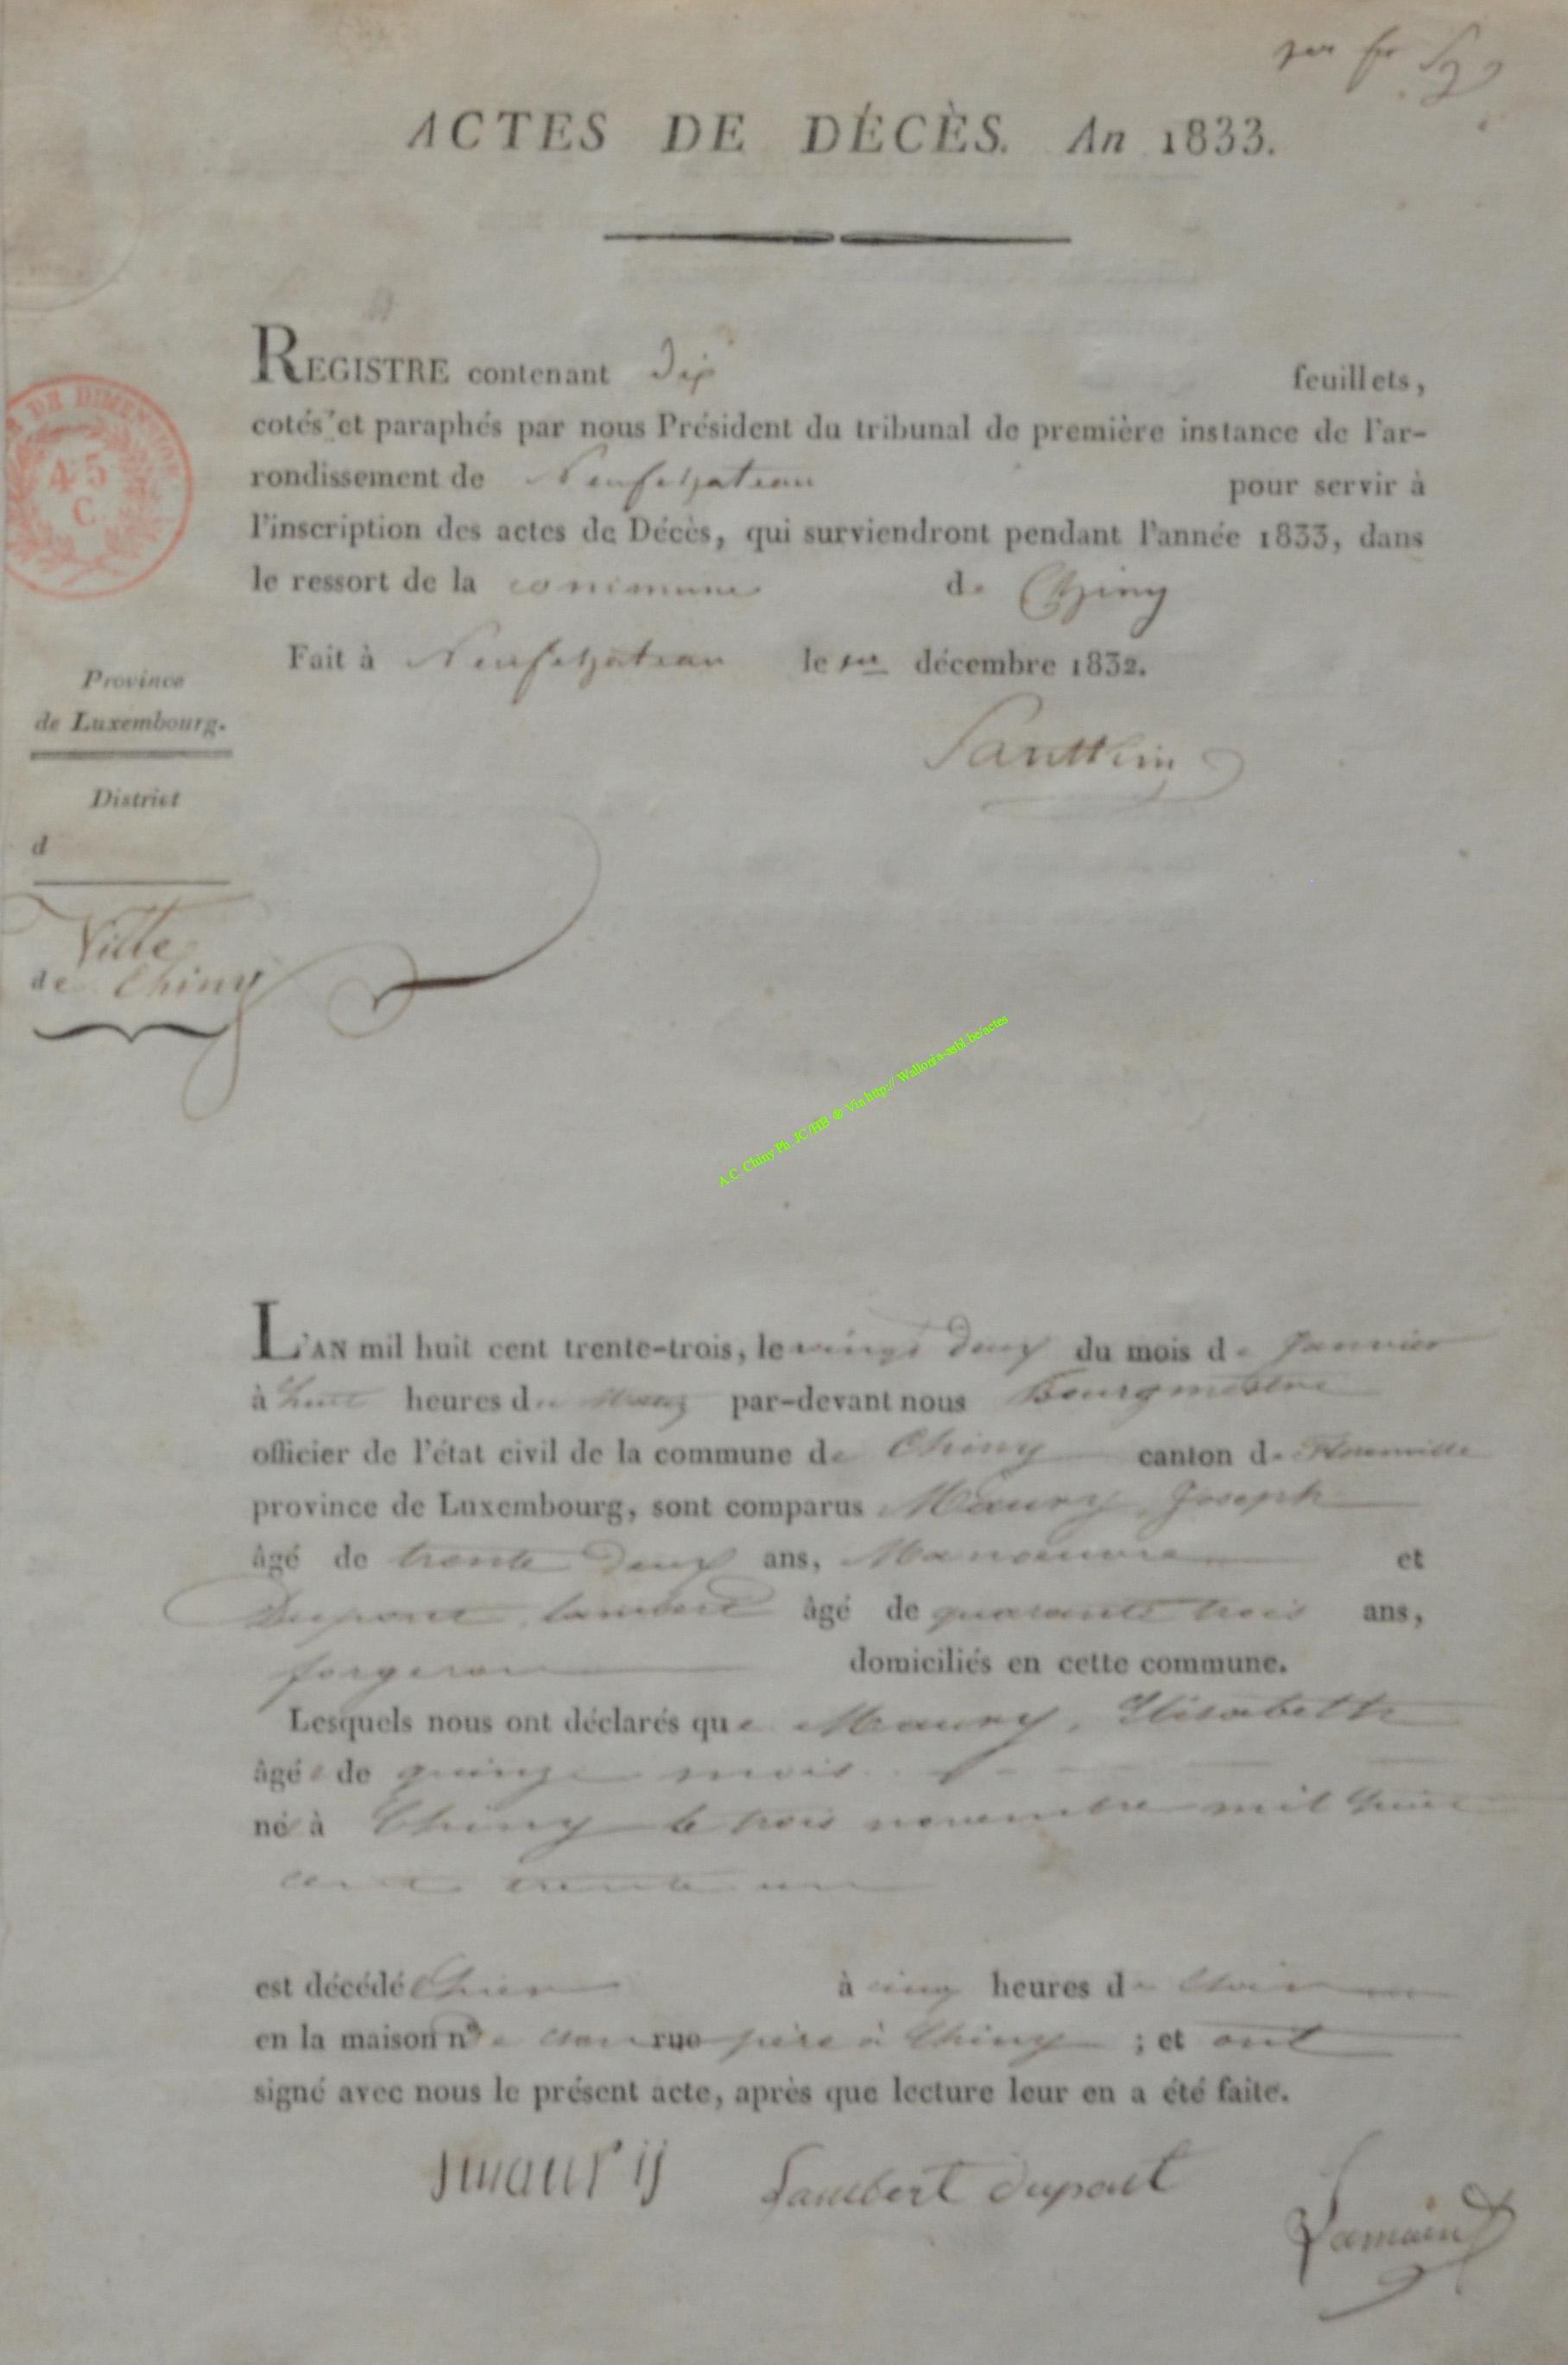 ACTES DE DÉCÈS. An 1833.
REGISTRE contenant Dix feuillets,
cotés et paraphés par nous Président du tribunal de première instance de l'ar-
rondissement de Neufchateau pour servir à
l'inscription des actes de Décès, qui surviendront pendant l'année 1833, dans
le ressort de la commune de Chiny
Fait à Neufchateau le 1er décembre 1832.
DE DIMENSION
45
C.
Province
de Luxembourg.
District
d
Ville
de Chiny
A.C. Chiny Ph. JC/HB © Via http:// Wallonia-asbl.be/actes
L'AN mil huit cent trente-trois, le vingt deux du mois de Janvier
à huit heures du par-devant nous Bourgmestre
officier de l'état civil de la commune de Chiny canton de Florenville
province de Luxembourg, sont comparus Maury Joseph
âgé de trente Deux ans, Manoeuvre et
Dupont, lambert âgé de quarante trois ans,
forgeron domiciliés en cette commune.
Lesquels nous ont déclarés que Maury, Elisabeth
âgée de quinze mois
né à Chiny le trois novembre mil huit
cent trente un
est décédé hier à cinq heures du soir
en la maison n° de son rue père à Chiny ; et ont
signé avec nous le présent acte, après que lecture leur en a été faite.
jmaurij Lambert dupont